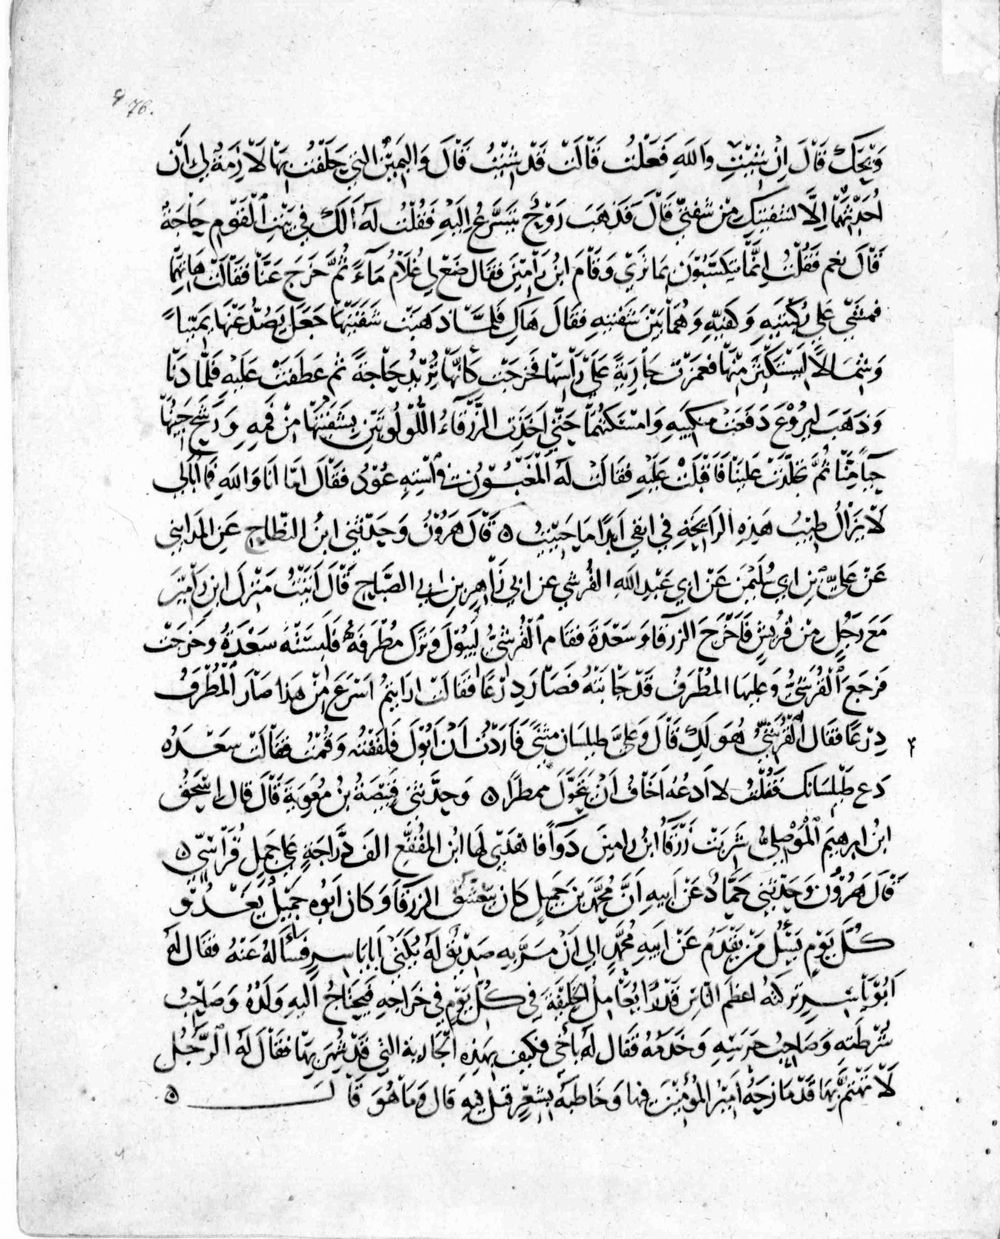 976.
وَيْحَكَ قَالَ اِنْ شِئْتِ وَاللهِ فَعَلْتُ قَالَتْ قَدْ شِئْتُ قَالَ وَاليَمِيْنُ التي حَلَفْتُ بِهَا لاَزِمَةٌ لِي اَنْ
اَخَذْتُهُمَا اِلَّا بِشَفَتَيْكِ مِنْ شَفَتَيَّ قَالَ فَذَهَبَ رَوْحٌ يَتَسَرَّعُ اِلَيْهِ فَقُلْتُ لَهُ اَلَكَ في بَيْتِ الْقَوْمِ حَاجَةٌ
قَالَ نعم فَقُلْتُ اِنَّمَا يَتَكَسَّبُوْنَ بِمَا تَرَى وَقَامَ ابنُ رَامِيْنَ فقال ضَعْ لي يَا غُلَامُ مَاءً ثُمَّ خَرَجَ عَنَّا فَقَالَتْ هَاتِهِمَا
فمشَى عَلى رُكْبَتَيْهِ وَكَفَّيْهِ وَهُمَا بَيْنَ شَفَتَيْهِ فَقَالَ هَاكِ فَلَمَّا ذَهَبَتْ بِشَفَتَيْهَا جَعَلَ يَصُدُّ عَنْهَا يَمِيْنًا
وَشِمَالاً لِيَسْتَكْثِرَ مِنْهَا فغمَزَتْ جَارِيَةً عَلَى رَأْسِهَا فَخَرَجَتْ كَأَنَّهَا تُرِيْدُ حَاجَةً ثم عَطَفَتْ عَلَيْهِ فَلَمَّا دَنَا
وَذَهَبَ لِيَرُوْغَ دَفَعَتْ مَنْكِبَيْهِ وَامْسَكَتْهُمَا حَتَّى اَخَذَتِ الزَّرْقَاءُ اللُّؤْلُؤَتَيْنِ بِشَفَتَيْهَا مِنْ فَمِهِ وَرَشَحَ جَبِيْنُهَا
حَيَاءً مِنَّا ثُمَّ تَجَلَّدَتْ عَلَيْنَا فَاَقْبَلَتْ عَلَيْهِ فقَالَتْ لَهُ الْمَغْبُوْنُ في اسْتِهِ عُوْدٌ فقَالَ اَمَّا اَنَا وَاللهِ فَمَا اُبَالي
لَا يَزَالُ طِيْبُ هَذِهِ الرَائِحَةِ في انفي اَبَدًا مَا حَيِيْتُ ۞ قَالَ هَرُوْنُ وَحَدَّثَنِي ابنُ النَّطَّاحِ عَنِ المَدَايني
عَنْ عَلِيِّ بْنِ ابي سُلَيْمٰنَ عَنْ ابي عَبْدِ اللهِ القُرَشِي عن ابي زَاهِرِ بنِ ابي الصَّبَّاحِ قَالَ اَتَيْتُ مَنْزِلَ ابنِ رَامِيْنَ
مَعَ رَجُلٍ مِنْ قُرَيْشٍ فَاَخْرَجَ الزرقاءَ وَسَعْدَةَ فقَامَ الْقُرَشِيُّ لِيَبُوْلَ وَتَرَكَ مُطْرَفَهُ فَلَبِسَتْهُ سَعْدَةُ وَخَرَجَتْ
فرَجَعَ الْقُرَشِيُّ وَعليهَا المُطْرَفُ قَدْ خَاطَتْهُ فصَارَ دِرْعًا فقَالَتْ اَرَايْتُمْ اَسْرَعَ مِنْ هَذَا صَارَ الْمُطْرَفُ
دِرْعًا فقَالَ الْقُرَشِيُّ هُوَ لَكِ قَالَ وَعَلَيَّ طَيْلَسَانٌ مثنىً فَاَرَدْتُ اَنْ اَبُوْلَ فَلَفَفْتُهُ وَقُمْتُ فقَالَتْ سَعْدَةُ
دَعْ طَيْلَسَانَكَ فَقُلْتُ لا اَدَعُهُ اَخَافُ اَنْ يَتَحَوَّلَ مُمْطَرًا ۞ وَحَدَّثَنِي قَبِيْصَةُ بنُ مُعٰوِيَةَ قَالَ قَالَ اِسْحٰقُ
ابنُ ابرهيمَ الْمَوْصِلِيُّ شَرِبَتْ زَرْقَاءُ ابنِ رَامِيْنَ دَوَاءً فَاَهْدَى لَهَا ابنُ المُقَفَّعِ الفَ دُرَّاجَةٍ عَلى جَمَلٍ قُرَاسِيٍّ ۞
قَالَ هَرُوْنُ وَحَدَّثَنِي حَمَّادٌ عَنْ اَبِيهِ اَنَّ مُحَمَّدَ بنَ جَمِيلٍ كانَ يَتَعَشَّقُ الزرقَاءَ وَكانَ اَبُوه جَمِيْلٌ يَغْدُو
كُلَّ يَوْمٍ يَسْئَلُ مَنْ يَقْدَمُ عَنْ ابنِهِ مُحَمَّدٍ الى اَنْ مَرَّ بِهِ صَدِيْقٌ لَهُ يُكَنَى اَبَا يَاسِرٍ فَسَأَلَهُ عَنْهُ فقَالَ لَهُ
اَبُوْ يَاسِرٍ تَرَكْتُهُ اَعظَمَ النَّاسِ قَدْرًا يُعَامِلُ الخَلِيْفَةَ في كُلِّ يَوْمٍ في خَرَاجِهِ فَيَحْتَاجُ اليهِ وَلَدُهُ وَصَاحِبُ
شُرْطَتِهِ وَصَاحِبُ حَرَسِهِ وَخَدَمُهُ فَقَالَ لَهُ يَا اَخِي فكَيْفَ بِهَذِهِ الْجَارِيَةِ التي قَدْ شُهِرَ بِهَا فقَالَ لَهُ الرَّجُلُ
لَا تَهْتَمَّ بِهَا قَدْ مَازَحَهُ اَمِيْرُ المُؤْمِنِيْنَ فيهَا وَخَاطَبَهُ بِشِعْرٍ قِيلَ فيهِ قَالَ وَمَا هُوَ قَالَ ۞